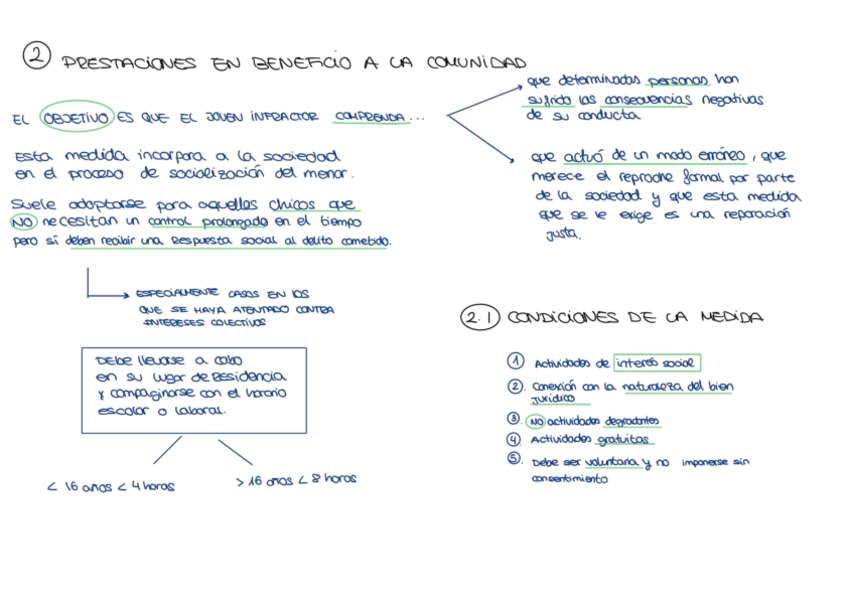 2 PRESTACIONES EN BENEFICIO A LA COMUNIDAD
EL OBJETIVO ES QUE EL JOVEN INFRACTOR COMPRENDA...
que determinadas personas han
sufrido las consecuencias negativas
de su conducta
que actuó de un modo erróneo, que
merece el reproche formal por parte
de la sociedad y que esta medida
que se le exige es una reparación
justa.
Esta medida incorpora a la sociedad
en el proceso de socialización del menor.
Suele adoptarse para aquellos chicos que
NO necesitan un control prolongado en el tiempo
pero sí deben recibir una respuesta social al delito cometido.
ESPECIALMENTE CASOS EN LOS
QUE SE HAYA ATENTADO CONTRA
INTERESES COLECTIVOS
Debe llevarse a cabo
en su lugar de Residencia
y compaginarse con el horario
escolar o laboral.
< 16 años < 4 horas
> 16 años < 8 horas
2.1 CONDICIONES DE LA MEDIDA
1 Actividades de interés social
2. Conexión con la naturaleza del bien
jurídico
3. NO actividades degradantes
4. Actividades gratuitas
5. Debe ser voluntaria y no imponerse sin
consentimiento